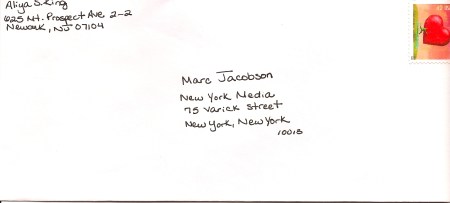 Aliya S. King
625 Mt. Prospect Ave 2-2
Newark, NJ 07104
Marc Jacobson
New York Media
75 Varick Street
New York, New York
10013